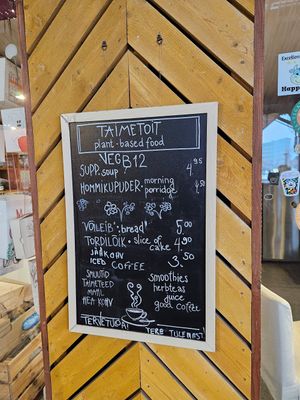 TAIMETOIT
plant-based food
VEGB12
SUPP. soup 4.95
HOMMIKUPUDER- morning porridge 4.50
VÕILEIB "bread" 5.00
TORDILÕIK - slice of cake 4.90
JÄÄKOHV
ICED COFFEE 3.50
SMUUTID smoothies
TAIMETEED herbteas
MAHL juice
HEA KOHV good coffee
TERVETULOA!
TERE TULEMAST!
Excellent
Happ